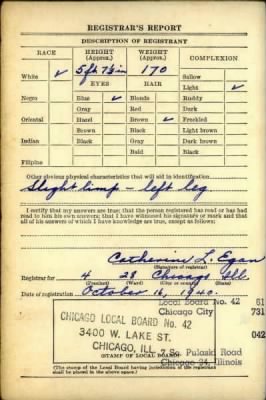 REGISTRAR'S REPORT
DESCRIPTION OF REGISTRANT
RACE HEIGHT (Approx.) WEIGHT (Approx.) COMPLEXION
5 ft 7½ in 170
White ✓ EYES HAIR Sallow
Light ✓
Negro Blue ✓ Blonde Ruddy
Gray Red Dark
Oriental Hazel Brown ✓ Freckled
Brown Black Light brown
Indian Black Gray Dark brown
Bald Black
Filipino
Other obvious physical characteristics that will aid in identification
Slight limp - left leg
I certify that my answers are true; that the person registered has read or has had
read to him his own answers; that I have witnessed his signature or mark and that
all of his answers of which I have knowledge are true, except as follows:
Catherine L. Egan
(Signature of registrar)
Registrar for 4 28 Chicago Ill.
(Precinct) (Ward) (City or county) (State)
Date of registration October 16, 1940.
Local Board No. 42 61
Chicago City 731
CHICAGO LOCAL BOARD No. 42
3400 W. LAKE ST. 042
CHICAGO, ILL. 7 So Pulaski Road
Chicago 24, Illinois
(STAMP OF LOCAL BOARD)
(The stamp of the Local Board having jurisdiction of the registrant
shall be placed in the above space.)